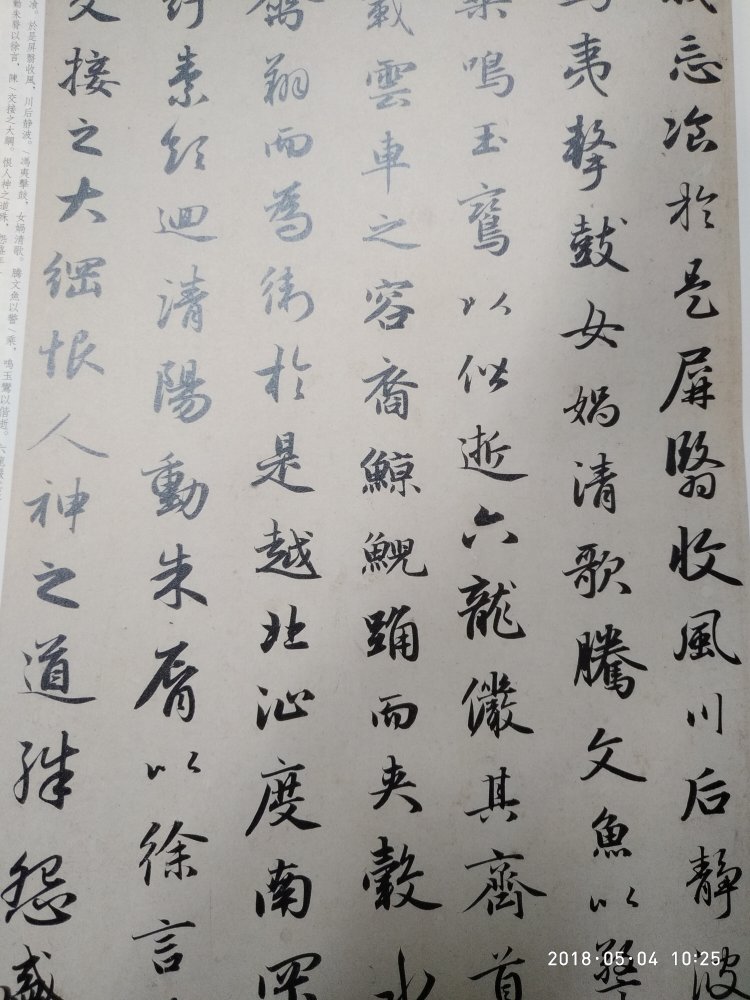 忘飡於是屏翳收風川后靜波
夷擊鼓女媧清歌騰文魚以警
乘鳴玉鸞以偕逝六龍儼其齊首
載雲車之容裔鯨鯢踊而夾轂水
禽翔而為衛於是越北沚度南岡
紆素領迴清陽動朱脣以徐言
交接之大綱恨人神之道殊怨盛
於是屏翳收風，川后静波。/馮夷擊鼓，女媧清歌。騰文魚以警/乘，鳴玉鸞以偕逝。六龍
動朱脣以徐言，陳/交接之大綱。恨人神之道殊，怨
2018·05·04 10:25